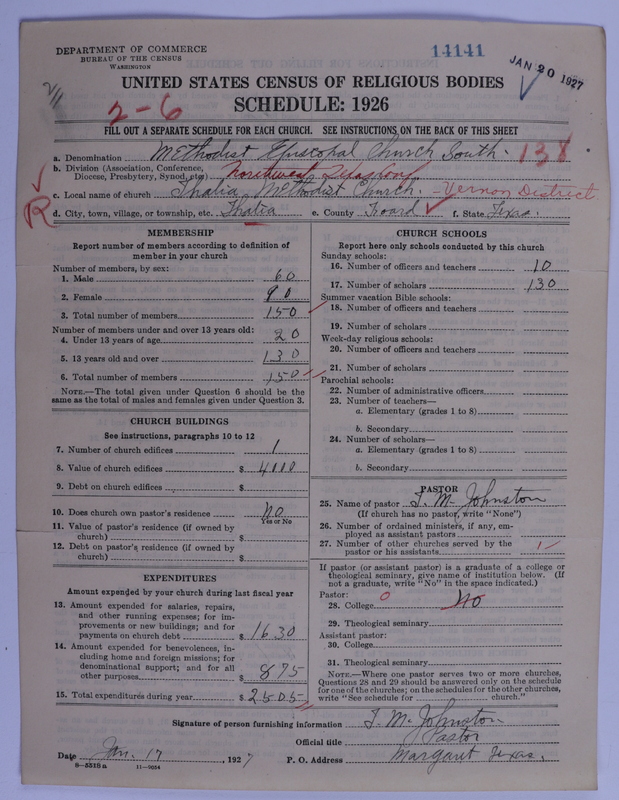 DEPARTMENT OF COMMERCE
BUREAU OF THE CENSUS
WASHINGTON
14141
JAN 20 1927
2-6
UNITED STATES CENSUS OF RELIGIOUS BODIES
SCHEDULE: 1926
FILL OUT A SEPARATE SCHEDULE FOR EACH CHURCH. SEE INSTRUCTIONS ON THE BACK OF THIS SHEET
a. Denomination Methodist Episcopal Church South. 138
b. Division (Association, Conference, Diocese, Presbytery, Synod, etc) Northwest Texas
c. Local name of church Thalia Methodist Church. - Vernon District
R
d. City, town, village, or township, etc. Thalia e. County Foard f. State Texas.
MEMBERSHIP
Report number of members according to definition of
member in your church
Number of members, by sex:
1. Male 60
2. Female 90
3. Total number of members 150
Number of members under and over 13 years old:
4. Under 13 years of age 20
5. 13 years old and over 130
6. Total number of members 150
NOTE.—The total given under Question 6 should be
same as the total of males and females given under Question 3.
CHURCH BUILDINGS
See instructions, paragraphs 10 to 12
7. Number of church edifices 1
8. Value of church edifices $ 4000
9. Debt on church edifices $
10. Does church own pastor's residence No
Yes or No
11. Value of pastor's residence (if owned by
church) $
12. Debt on pastor's residence (if owned by
church) $
EXPENDITURES
Amount expended by your church during last fiscal year
13. Amount expended for salaries, repairs,
and other running expenses; for im-
provements or new buildings; and for
payments on church debt $ 1630
14. Amount expended for benevolences, in-
cluding home and foreign missions; for
denominational support; and for all
other purposes $ 875
15. Total expenditures during year $ 2505
CHURCH SCHOOLS
Report here only schools conducted by this church
Sunday schools:
16. Number of officers and teachers 10
17. Number of scholars 130
Summer vacation Bible schools:
18. Number of officers and teachers
19. Number of scholars
Week-day religious schools:
20. Number of officers and teachers
21. Number of scholars
Parochial schools:
22. Number of administrative officers
23. Number of teachers—
a. Elementary (grades 1 to 8)
b. Secondary
24. Number of scholars—
a. Elementary (grades 1 to 8)
b. Secondary
PASTOR
25. Name of pastor T. M. Johnston
(If church has no pastor, write "None")
26. Number of ordained ministers, if any, em-
ployed as assistant pastors
27. Number of other churches served by the
pastor or his assistants 1
If pastor (or assistant pastor) is a graduate of a college or
theological seminary, give name of institution below. (If
not a graduate, write "No" in the space indicated.)
Pastor:
28. College 0 No
29. Theological seminary
Assistant pastor:
30. College
31. Theological seminary
NOTE.—Where one pastor serves two or more churches,
Questions 28 and 29 should be answered only on the schedule
for one of the churches; on the schedules for the other churches,
write "See schedule for church."
Signature of person furnishing information T. M. Johnston
Official title Pastor
Date Jan. 17, 1927 P. O. Address Margaret Texas.
8-5518a 11-9054